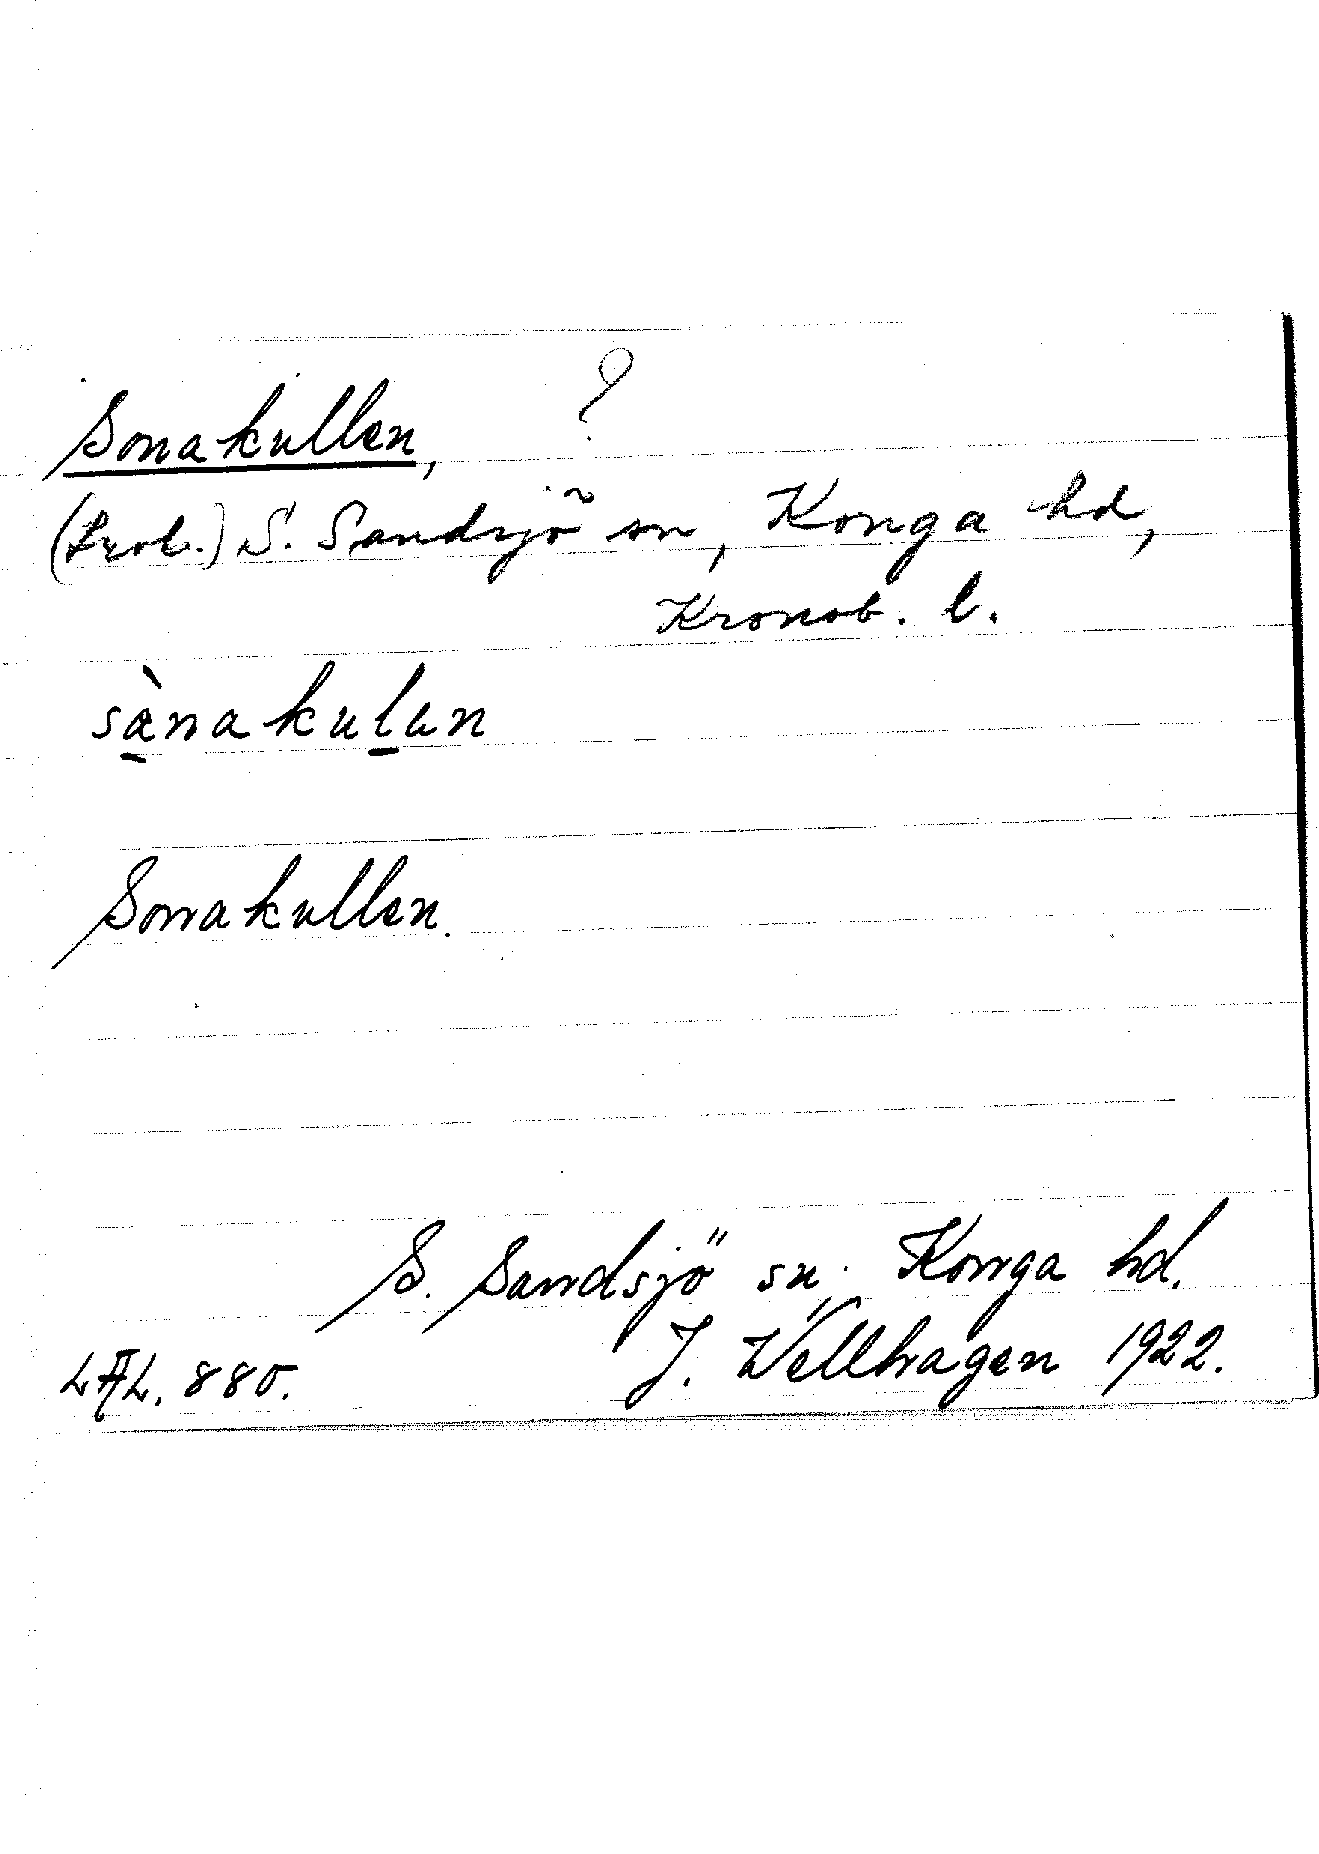 Sonakullen, ?
S. Sandsjö sn, Konga hd,
Kronob. l.
sànakulen
Sonakullen.
S. Sandsjö sn. Konga hd.
J. Wellhagen 1922.
880.